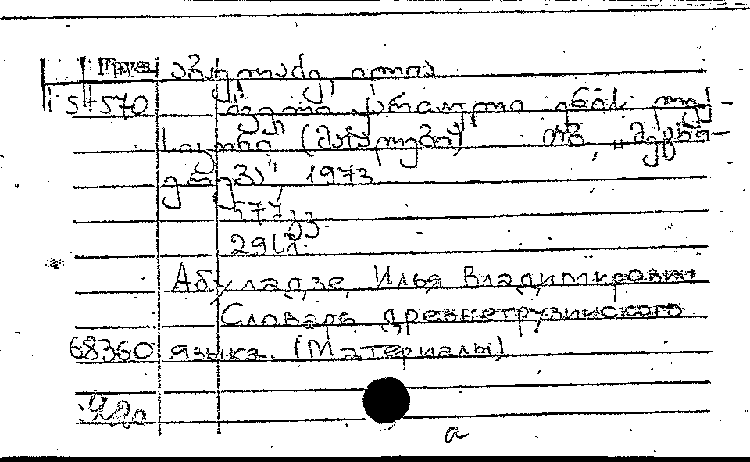 აბულაძე ილია
570 ძველი ქართული ენის ლექ-
სიკონი (მასალები) თბ., „მეცნი-
ერება", 1973
577 გვ.
29 სმ.
Абуладзе, Илья Владимирович
Словарь древнегрузинского
68360 языка. (Материалы)
а